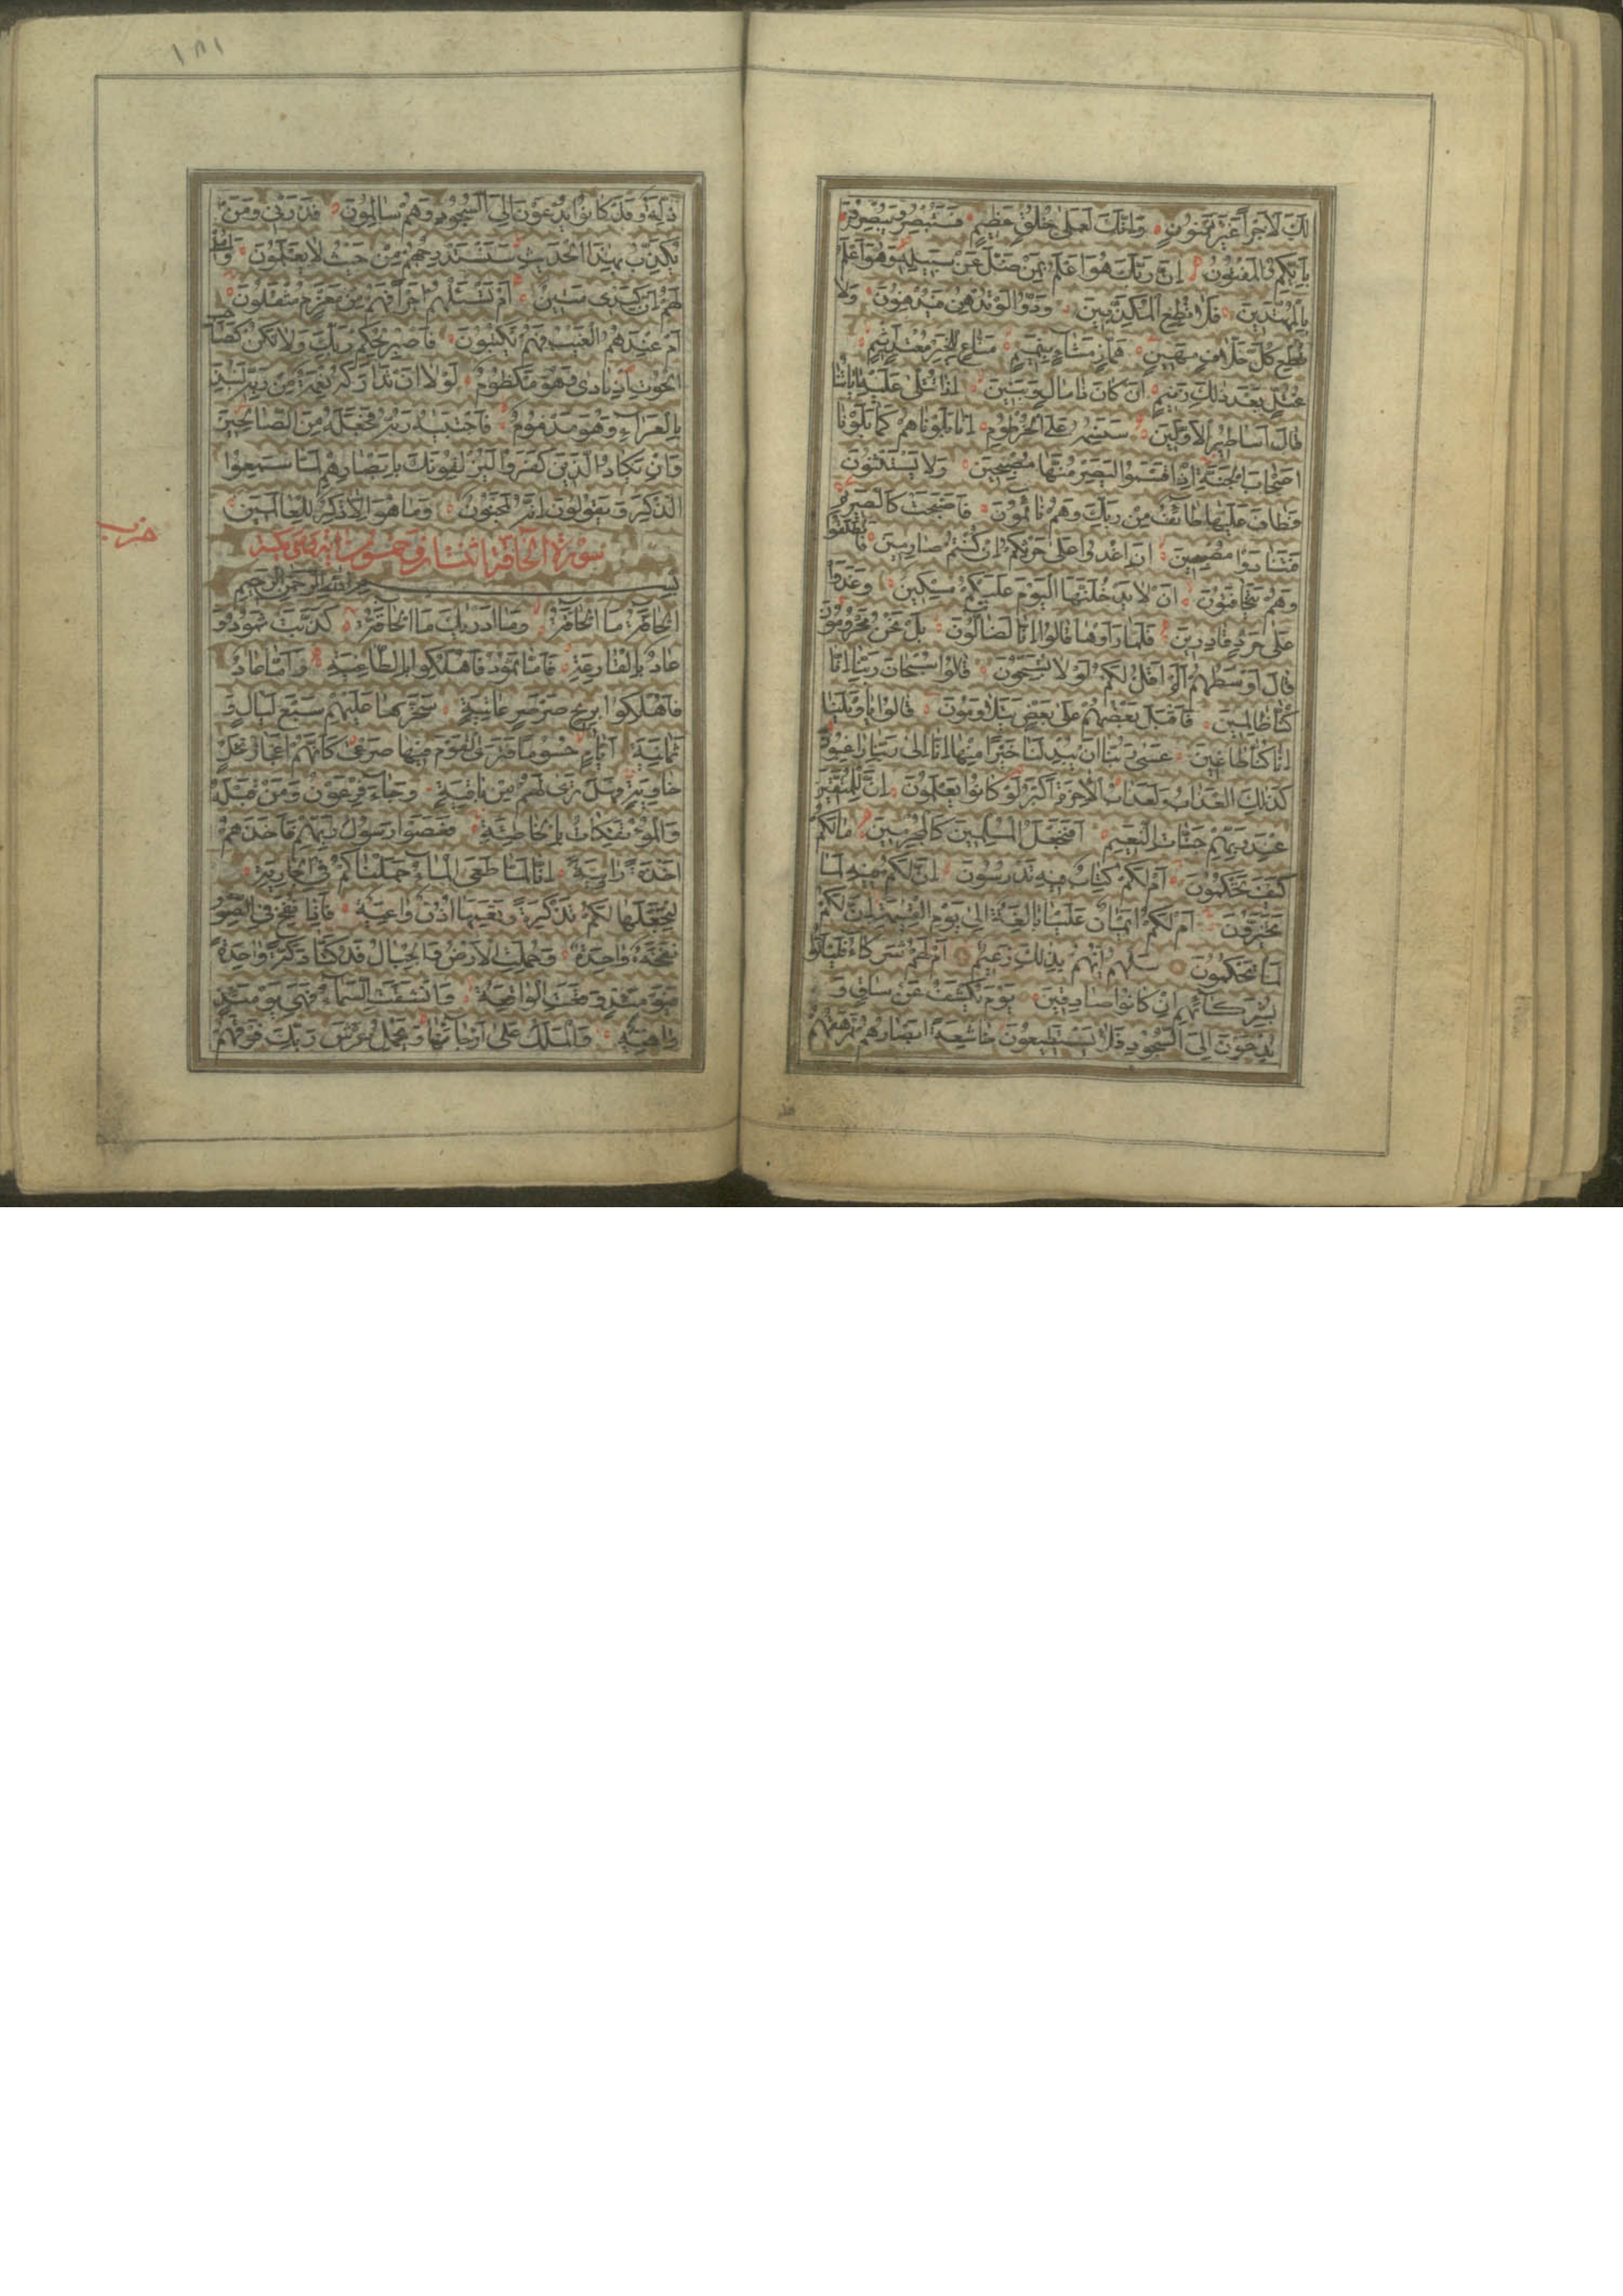 لَكَ لَاَجْراً غَيْرَ مَمْنُونٍ وَاِنَّكَ لَعَلىٰ خُلُقٍ عَظِيمٍ فَسَتُبْصِرُ وَيُبْصِرُونَ
بِاَيِّكُمُ الْمَفْتُونُ اِنَّ رَبَّكَ هُوَ اَعْلَمُ بِمَنْ ضَلَّ عَنْ سَبِيلِهِ وَهُوَ اَعْلَمُ
بِالْمُهْتَدِينَ فَلَا تُطِعِ الْمُكَذِّبِينَ وَدُّوا لَوْ تُدْهِنُ فَيُدْهِنُونَ وَلَا
تُطِعْ كُلَّ حَلَّافٍ مَهِينٍ هَمَّازٍ مَشَّاءٍ بِنَمِيمٍ مَنَّاعٍ لِلْخَيْرِ مُعْتَدٍ اَثِيمٍ
عُتُلٍّ بَعْدَ ذٰلِكَ زَنِيمٍ اَنْ كَانَ ذَا مَالٍ وَبَنِينَ اِذَا تُتْلىٰ عَلَيْهِ اٰيَاتُنَا
قَالَ اَسَاطِيرُ الْاَوَّلِينَ سَنَسِمُهُ عَلَى الْخُرْطُومِ اِنَّا بَلَوْنَاهُمْ كَمَا بَلَوْنَا
اَصْحَابَ الْجَنَّةِ اِذْ اَقْسَمُوا لَيَصْرِمُنَّهَا مُصْبِحِينَ وَلَا يَسْتَثْنُونَ
فَطَافَ عَلَيْهَا طَائِفٌ مِنْ رَبِّكَ وَهُمْ نَائِمُونَ فَاَصْبَحَتْ كَالصَّرِيمِ
فَتَنَادَوْا مُصْبِحِينَ اَنِ اغْدُوا عَلىٰ حَرْثِكُمْ اِنْ كُنْتُمْ صَارِمِينَ فَانْطَلَقُوا
وَهُمْ يَتَخَافَتُونَ اَنْ لَا يَدْخُلَنَّهَا الْيَوْمَ عَلَيْكُمْ مِسْكِينٌ وَغَدَوْا
عَلىٰ حَرْدٍ قَادِرِينَ فَلَمَّا رَاَوْهَا قَالُوا اِنَّا لَضَالُّونَ بَلْ نَحْنُ مَحْرُومُونَ
قَالَ اَوْسَطُهُمْ اَلَمْ اَقُلْ لَكُمْ لَوْلَا تُسَبِّحُونَ قَالُوا سُبْحَانَ رَبِّنَا اِنَّا
كُنَّا ظَالِمِينَ فَاَقْبَلَ بَعْضُهُمْ عَلىٰ بَعْضٍ يَتَلَاوَمُونَ قَالُوا يَا وَيْلَنَا
اِنَّا كُنَّا طَاغِينَ عَسىٰ رَبُّنَا اَنْ يُبْدِلَنَا خَيْرًا مِنْهَا اِنَّا اِلىٰ رَبِّنَا رَاغِبُونَ
كَذٰلِكَ الْعَذَابُ وَلَعَذَابُ الْاٰخِرَةِ اَكْبَرُ لَوْ كَانُوا يَعْلَمُونَ اِنَّ لِلْمُتَّقِينَ
عِنْدَ رَبِّهِمْ جَنَّاتِ النَّعِيمِ اَفَنَجْعَلُ الْمُسْلِمِينَ كَالْمُجْرِمِينَ مَا لَكُمْ
كَيْفَ تَحْكُمُونَ اَمْ لَكُمْ كِتَابٌ فِيهِ تَدْرُسُونَ اِنَّ لَكُمْ فِيهِ لَمَا
تَخَيَّرُونَ اَمْ لَكُمْ اَيْمَانٌ عَلَيْنَا بَالِغَةٌ اِلىٰ يَوْمِ الْقِيٰمَةِ اِنَّ لَكُمْ
لَمَا تَحْكُمُونَ سَلْهُمْ اَيُّهُمْ بِذٰلِكَ زَعِيمٌ اَمْ لَهُمْ شُرَكَاءُ فَلْيَاْتُوا
بِشُرَكَائِهِمْ اِنْ كَانُوا صَادِقِينَ يَوْمَ يُكْشَفُ عَنْ سَاقٍ وَ
يُدْعَوْنَ اِلَى السُّجُودِ فَلَا يَسْتَطِيعُونَ خَاشِعَةً اَبْصَارُهُمْ تَرْهَقُهُمْ
١٨١
ذِلَّةٌ وَقَدْ كَانُوا يُدْعَوْنَ اِلَى السُّجُودِ وَهُمْ سَالِمُونَ فَذَرْنِي وَمَنْ
يُكَذِّبُ بِهٰذَا الْحَدِيثِ سَنَسْتَدْرِجُهُمْ مِنْ حَيْثُ لَا يَعْلَمُونَ وَاُمْلِي
لَهُمْ اِنَّ كَيْدِي مَتِينٌ اَمْ تَسْئَلُهُمْ اَجْراً فَهُمْ مِنْ مَغْرَمٍ مُثْقَلُونَ
اَمْ عِنْدَهُمُ الْغَيْبُ فَهُمْ يَكْتُبُونَ فَاصْبِرْ لِحُكْمِ رَبِّكَ وَلَا تَكُنْ كَصَاحِبِ
الْحُوتِ اِذْ نَادىٰ وَهُوَ مَكْظُومٌ لَوْلَا اَنْ تَدَارَكَهُ نِعْمَةٌ مِنْ رَبِّهِ لَنُبِذَ
بِالْعَرَاءِ وَهُوَ مَذْمُومٌ فَاجْتَبٰيهُ رَبُّهُ فَجَعَلَهُ مِنَ الصَّالِحِينَ
وَاِنْ يَكَادُ الَّذِينَ كَفَرُوا لَيُزْلِقُونَكَ بِاَبْصَارِهِمْ لَمَّا سَمِعُوا
الذِّكْرَ وَيَقُولُونَ اِنَّهُ لَمَجْنُونٌ وَمَا هُوَ اِلَّا ذِكْرٌ لِلْعَالَمِينَ
حزب
سورة الحاقة اثنتان وخمسون اية وهى مكية
بسم الله الرحمن الرحيم
اَلْحَاقَّةُ مَا الْحَاقَّةُ وَمَا اَدْرٰيكَ مَا الْحَاقَّةُ كَذَّبَتْ ثَمُودُ وَ
عَادٌ بِالْقَارِعَةِ فَاَمَّا ثَمُودُ فَاُهْلِكُوا بِالطَّاغِيَةِ وَاَمَّا عَادٌ
فَاُهْلِكُوا بِرِيحٍ صَرْصَرٍ عَاتِيَةٍ سَخَّرَهَا عَلَيْهِمْ سَبْعَ لَيَالٍ وَ
ثَمَانِيَةَ اَيَّامٍ حُسُومًا فَتَرَى الْقَوْمَ فِيهَا صَرْعىٰ كَاَنَّهُمْ اَعْجَازُ نَخْلٍ
خَاوِيَةٍ فَهَلْ تَرىٰ لَهُمْ مِنْ بَاقِيَةٍ وَجَاءَ فِرْعَوْنُ وَمَنْ قَبْلَهُ
وَالْمُؤْتَفِكَاتُ بِالْخَاطِئَةِ فَعَصَوْا رَسُولَ رَبِّهِمْ فَاَخَذَهُمْ
اَخْذَةً رَابِيَةً اِنَّا لَمَّا طَغَى الْمَاءُ حَمَلْنَاكُمْ فِي الْجَارِيَةِ
لِنَجْعَلَهَا لَكُمْ تَذْكِرَةً وَتَعِيَهَا اُذُنٌ وَاعِيَةٌ فَاِذَا نُفِخَ فِي الصُّورِ
نَفْخَةٌ وَاحِدَةٌ وَحُمِلَتِ الْاَرْضُ وَالْجِبَالُ فَدُكَّتَا دَكَّةً وَاحِدَةً
فَيَوْمَئِذٍ وَقَعَتِ الْوَاقِعَةُ وَانْشَقَّتِ السَّمَاءُ فَهِيَ يَوْمَئِذٍ
وَاهِيَةٌ وَالْمَلَكُ عَلىٰ اَرْجَائِهَا وَيَحْمِلُ عَرْشَ رَبِّكَ فَوْقَهُمْ